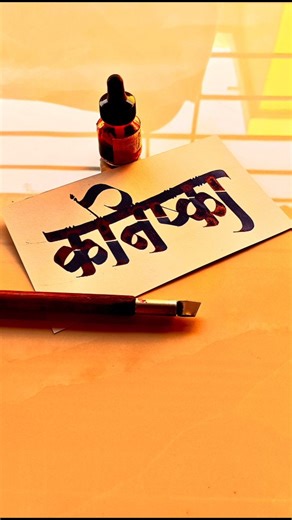 कनिष्का